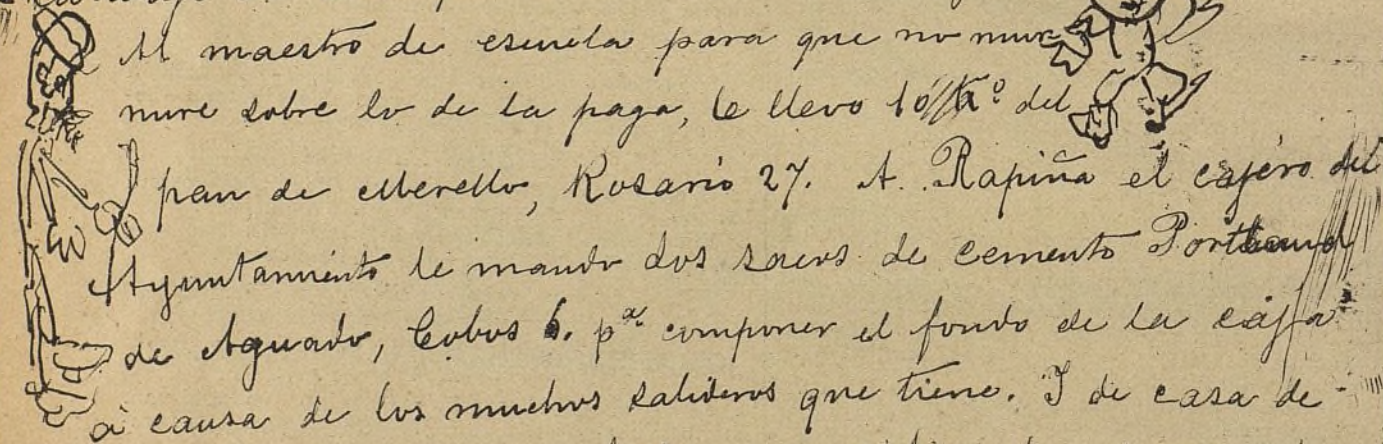 Al maestro de escuela para que no mur
mure sobre lo de la paga, le llevo 10 Kº del
pan de Merello, Rosario 27. A Rapiña el cajero del
Ayuntamiento le mando dos sacos de cemento Portland
de Aguado, Cobos 6. pª componer el fondo de la caja
à causa de los muchos salideros que tiene. I de casa de